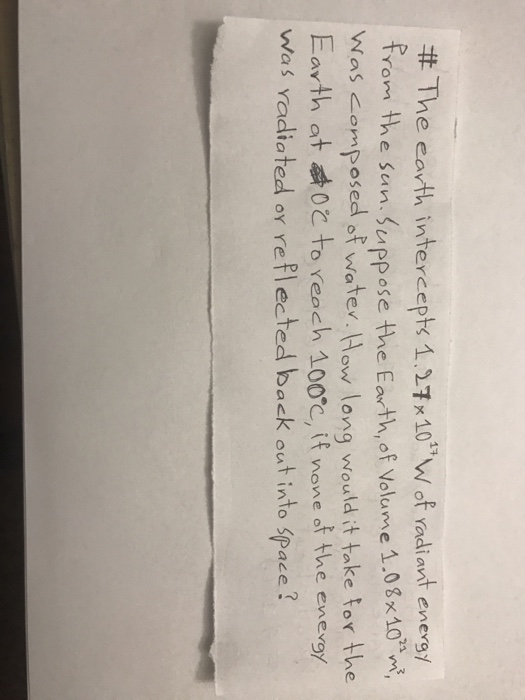 # The earth intercepts 1.27 x 10¹⁷ W of radiant energy
from the sun. Suppose the Earth, of Volume 1.08 x 10²¹ m³,
was composed of water. How long would it take for the
Earth at 0°C to reach 100°C, if none of the energy
was radiated or reflected back out into space?